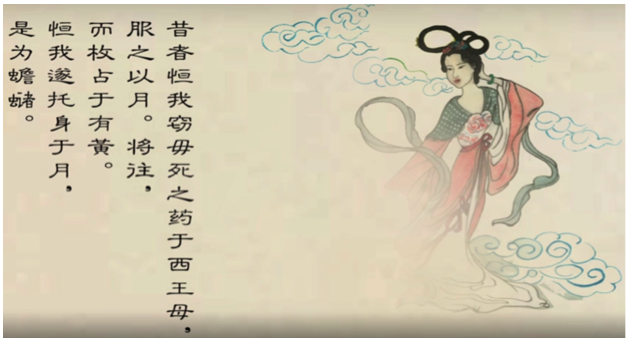 昔者恒我窃毋死之药于西王母，
服之以月。将往，
而枚占于有黄。
恒我遂托身于月，
是为蟾蠩。